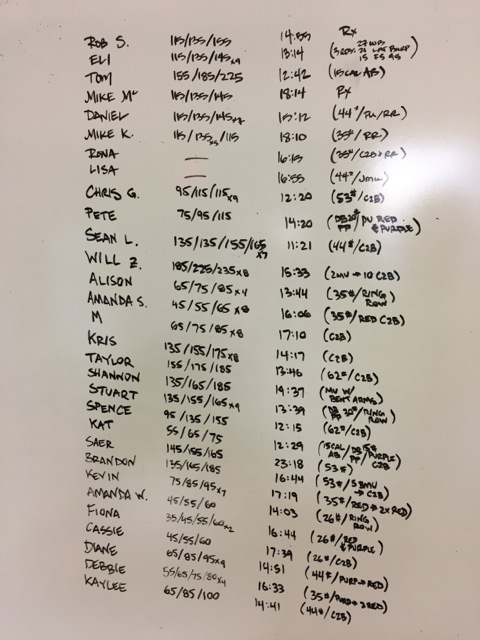 ROB S. 115/135/155 14:55 RX
ELI 115/135/145x9 13:14
TOM 155/185/225 12:42 (15 CAL AB)
MIKE Mc 115/135/145 18:14 RX
DANIEL 115/135/145 15:12 (44#/PU/RR)
MIKE K. 115/135x5/115 18:10 (35#/RR)
RONA — 16:15 (35#/C2B+RR)
LISA — 16:55 (44#/JMU)
CHRIS G. 95/115/115x9 12:20 (53#/C2B)
PETE 75/95/115 14:20 (DB 20# PP/PU RED & PURPLE)
SEAN L. 135/135/155/165x7 11:21 (44#/C2B)
WILL Z. 185/225/235x8 15:33 (2MU → 10 C2B)
ALISON 65/75/85x4 13:44 (35#/RING ROW)
AMANDA S. 45/55/65x8 16:06 (35#/RED C2B)
M 65/75/85x8 17:10 (C2B)
KRIS 135/155/175x8 14:17 (C2B)
TAYLOR 155/175/185 13:46 (62#/C2B)
SHANNON 135/165/185 19:37 (MU W/ BENT ARMS)
STUART 135/155/165x9 13:39 (DB 30# PP/RING ROW)
SPENCE 95/135/155 12:15 (62#/C2B)
KAT 55/65/75 12:29 (15CAL AB/DB 15# PP/PURPLE C2B)
SAER 145/155/165 23:18 (53#)
BRANDON 135/165/185 16:44 (53#/5 BMU → C2B)
KEVIN 75/85/95x7 17:19 (35#/RED → 2X RED)
AMANDA W. 45/55/60 14:03 (26#/RING ROW)
FIONA 35/45/55/60x2 16:44 (26#/RED & PURPLE)
CASSIE 45/55/60 17:39 (26#/C2B)
DIANE 65/85/95x9 14:51 (44#/PURP → RED)
DEBBIE 55/65/75/85x4 16:33 (35#/PURP → 2 RED)
KAYLEE 65/85/100 14:41 (44#/C2B)